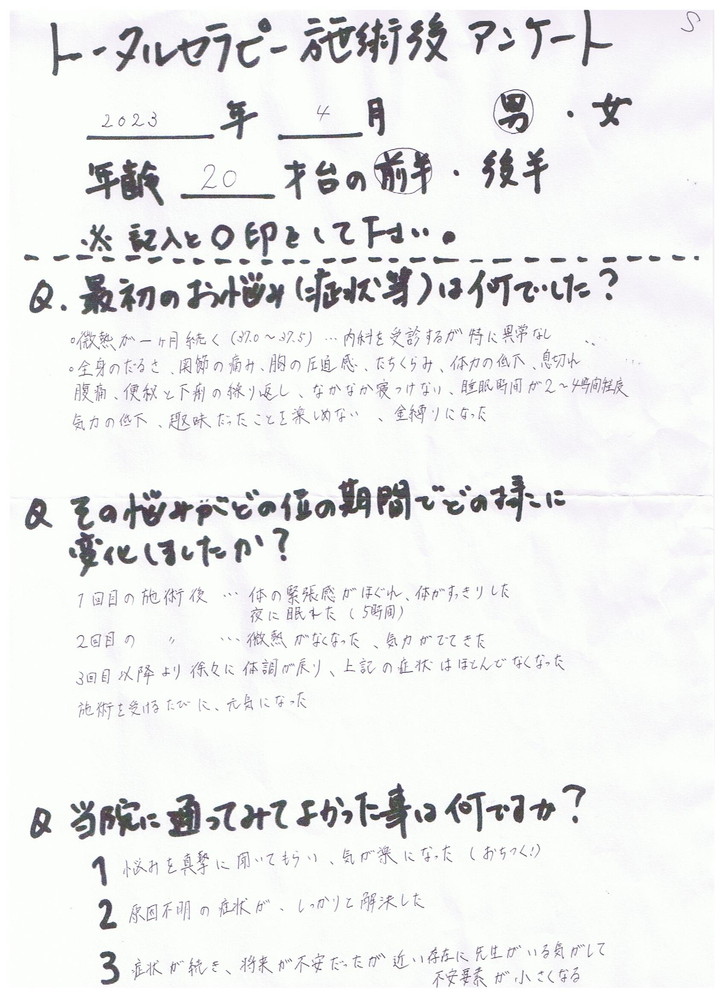 S
トータルセラピー施術後 アンケート
2023 年 4 月 男・女
年齢 20 才台の 前半・後半
※ 記入と〇印をして下さい。
Q. 最初のお悩み(症状等)は何でした?
○微熱が一ヶ月続く (37.0～37.5) … 内科を受診するが特に異常なし
○全身のだるさ、関節の痛み、胸の圧迫感、たちくらみ、体力の低下、息切れ
腹痛、便秘と下剤の繰り返し、なかなか寝つけない、睡眠時間が2～4時間程度
気力の低下、趣味だったことを楽しめない、金縛りになった
Q その悩みがどの位の期間でどの様に
変化しましたか?
1回目の施術後 … 体の緊張感がほぐれ、体がすっきりした
夜に眠れた (5時間)
2回目の 〃 … 微熱がなくなった、気力がでてきた
3回目以降より徐々に体調が戻り、上記の症状はほとんどなくなった
施術を受けるたびに、元気になった
Q 当院に通ってみてよかった事は何ですか?
1 悩みを真摯に聞いてもらい、気が楽になった (おちつく!)
2 原因不明の症状が、しっかりと解決した
3 症状が続き、将来が不安だったが近い存在に先生がいる気がして
不安要素が小さくなる